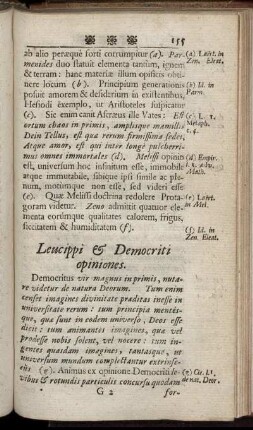 155
ab alio peræque forti corrumpitur (a). Par-
menides duo statuit elementa tantum, ignem
& terram: hanc materiæ illum opificis obti-
nere locum (b). Principium generationis
posuit amorem & desiderium in existentibus,
Hesiodi exemplo, ut Aristoteles suspicatur
(c). Sic enim canit Ascræus ille Vates: Est
ortum chaos in primis, amplisque mamillis
Dein Tellus, est qua rerum firmissima sedes,
Atque amor, est qui inter longe pulcherri-
mus omnes immortales (d). Melissi opinio
est, universum hoc infinitum esse, immobile
atque immutabile, sibique ipsi simile ac ple-
num, motumque non esse, sed videri esse
(e). Quæ Melissi doctrina redolere Prota-
goram videtur. Zeno admittit quatuor ele-
menta eorumque qualitates calorem, frigus,
siccitatem & humiditatem (f).
Leucippi & Democriti
opiniones.
Democritus vir magnus in primis, nuta-
re videtur de natura Deorum. Tum enim
censet imagines divinitate præditas inesse in
universitate rerum: tum principia mentis-
que, quæ sunt in eodem universo, Deos esse
dicit: tum animantes imagines, quæ vel
prodesse nobis solent, vel nocere: tum in-
gentes quasdam imagines, tantasque, ut
universum mundum complectantur extrinse-
cus (g). Animas ex opinione Democriti le-
vibus & rotundis particulis concursu quodam
G 2
for-
(a) Laërt. in
Zen. Eleat.
(b) Id. in
Parm.
(c) L. 1.
Metaph.
c. 4.
(d) Empir.
adv.
Math.
(e) Laërt.
in Mel.
(f) Id. in
Zen. Eleat.
(g) Cic. L. 1.
de nat. Deor.